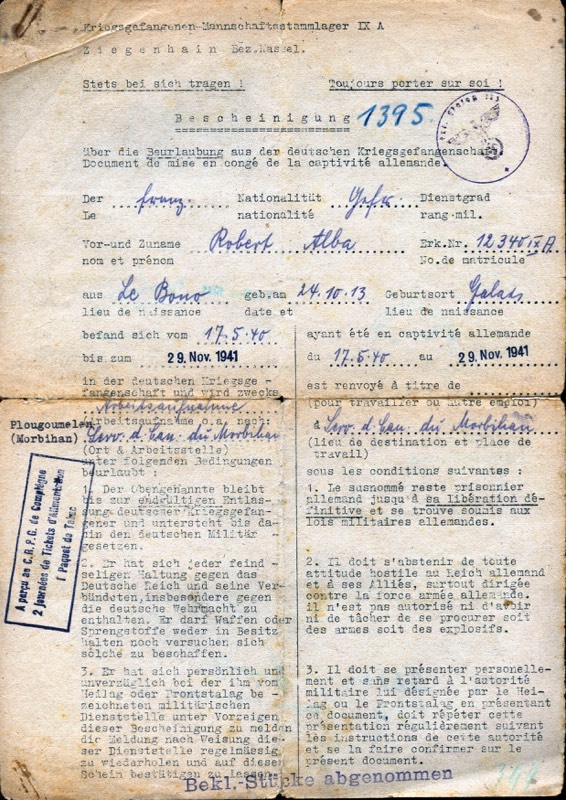 Kriegsgefangenen-Mannschaftsstammlager IX A
Ziegenhain Bez.Kassel.
Stets bei sich tragen ! Toujours porter sur soi !
Bescheinigung 1395.
über die Beurlaubung aus der deutschen Kriegsgefangenschaft
Document de mise en congé de la captivité allemande.
Der franz. Nationalität Gefr. Dienstgrad
Le nationalité rang mil.
Vor-und Zuname Robert Alba Erk.Nr. 12340 IX A
nom et prénom No.de matricule
aus Le Bono geb.am 24.10.13 Geburtsort
lieu de naissance date et lieu de naissance
befand sich vom 17.5.40 ayant été en captivité allemande
bis zum 29. Nov. 1941 du 17.5.40 au 29. Nov. 1941
in der deutschen Kriegsge-
fangenschaft und wird zwecks est renvoyé à titre de
Arbeitsaufnahme (pour travailler ou autre emploi)
Arbeitsaufnahme o.a. nach:
Plougoumelen
(Morbihan) Serv. d. Can. du Morbihan à Serv. d. Can. du Morbihan
(Ort & Arbeitsstelle) (lieu de destination et place de
unter folgenden Bedingungen travail)
beurlaubt sous les conditions suivantes :
1. Der Obengenannte bleibt
bis zur endgültigen Entlas-
sung deutscher Kriegsgefan-
gener und untersteht bis da-
hin den deutschen Militär -
gesetzen.
1. Le susnommé reste prisonnier
allemand jusqu'à sa libération dé-
finitive et se trouve soumis aux
lois militaires allemandes.
2 journées de Tickets d'Alimentation
1 Paquet de Tabac
2. Er hat sich jeder feind -
seligen Haltung gegen das
Deutsche Reich und seine Ver-
bündeten, insbesondere gegen
die deutsche Wehrmacht zu
enthalten. Er darf Waffen oder
Sprengstoffe weder in Besitz
halten noch versuchen sich
solche zu beschaffen.
2. Il doit s'abstenir de toute
attitude hostile au Reich allemand
et à ses Alliés, surtout dirigée
contre la force armée allemande.
il n'est pas autorisé ni d'avoir
ni de tâcher de se procurer soit
des armes soit des explosifs.
3. Er hat sich persönlich und
unverzüglich bei der ihm vom
Heilag oder Frontstalag be -
zeichneten militärischen
Dienststelle unter Vorzeigen
dieser Bescheinigung zu melden
die Meldung nach Weisung die-
ser Dienststelle regelmässig
zu wiederholen und auf diese
Schein bestätigen zu lassen.
3. Il doit se présenter personelle-
ment et sans retard à l'autorité
militaire lui désignée par le Hei-
lag ou le Frontstalag en présentant
ce document, doit répéter cette
présentation régulièrement suivant
les instructions de cette autorité
et se la faire confirmer sur le
présent document.
Bekl.-Stücke abgenommen